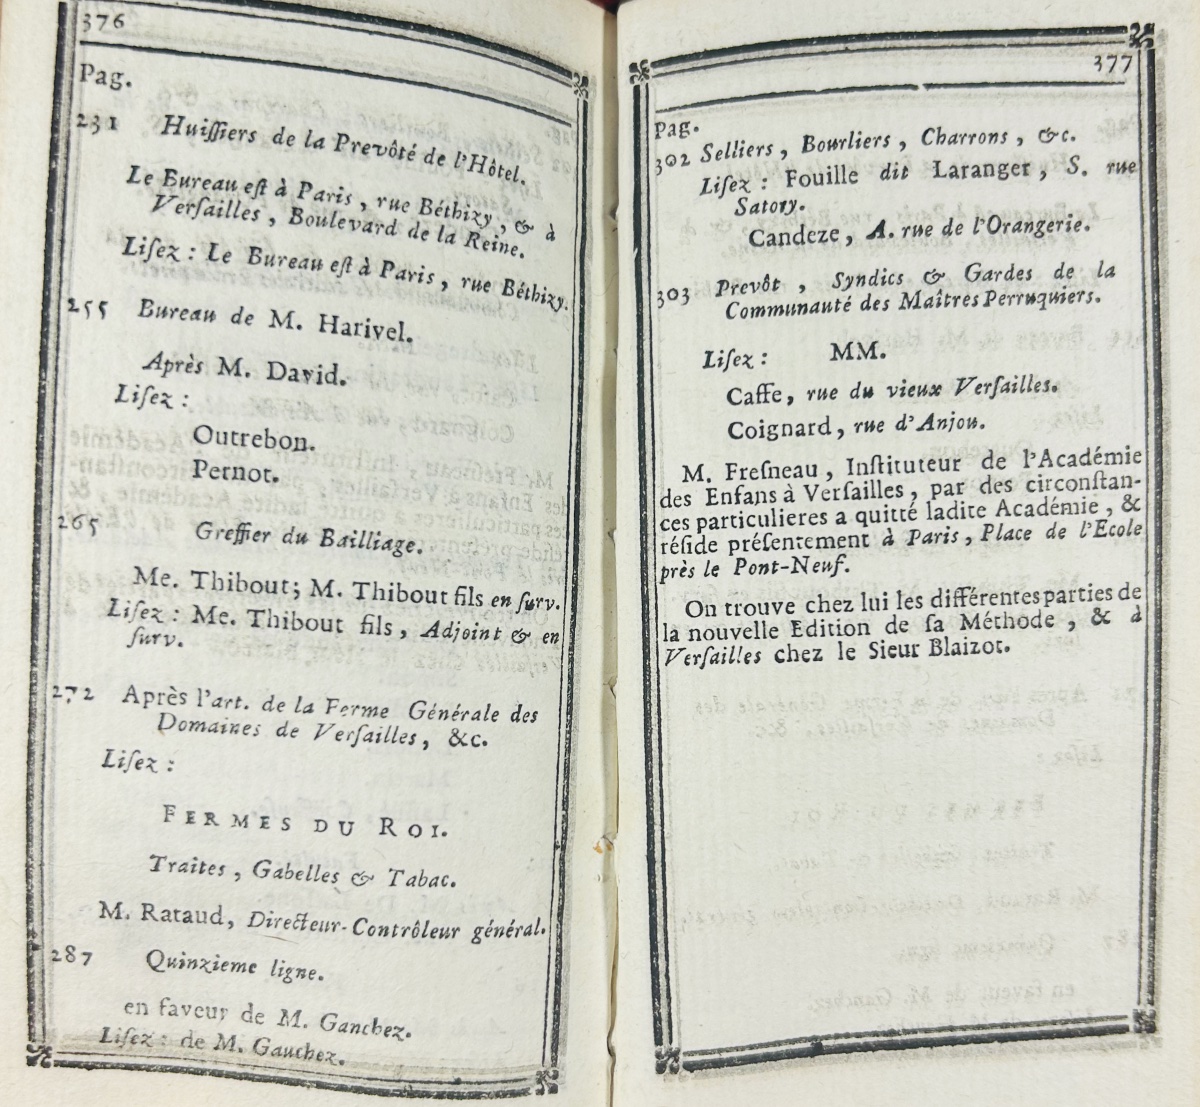 376
Pag.
231 Huiſſiers de la Prevôté de l'Hôtel.
Le Bureau eſt à Paris, rue Béthizy, & à
Verſailles, Boulevard de la Reine.
Liſez : Le Bureau eſt à Paris, rue Béthizy.
255 Bureau de M. Harivel.
Après M. David.
Liſez :
Outrebon.
Pernot.
265 Greffier du Bailliage.
Me. Thibout; M. Thibout fils en ſurv.
Liſez : Me. Thibout fils, Adjoint & en
ſurv.
272 Après l'art. de la Ferme Générale des
Domaines de Verſailles, &c.
Liſez :
FERMES DU ROI.
Traites, Gabelles & Tabac.
M. Rataud, Directeur-Contrôleur général.
287 Quinzieme ligne.
en faveur de M. Ganchez.
Liſez : de M. Gauchez.
377
Pag.
302 Selliers, Bourliers, Charrons, &c.
Liſez : Fouille dit Laranger, S. rue
Satory.
Candeze, A. rue de l'Orangerie.
303 Prevôt, Syndics & Gardes de la
Communauté des Maîtres Perruquiers.
Liſez : MM.
Caffe, rue du vieux Verſailles.
Coignard, rue d'Anjou.
M. Freſneau, Inſtituteur de l'Académie
des Enfans à Verſailles, par des circonſtan-
ces particulieres a quitté ladite Académie, &
réſide préſentement à Paris, Place de l'Ecole
près le Pont-Neuf.
On trouve chez lui les différentes parties de
la nouvelle Edition de ſa Méthode, & à
Verſailles chez le Sieur Blaizot.